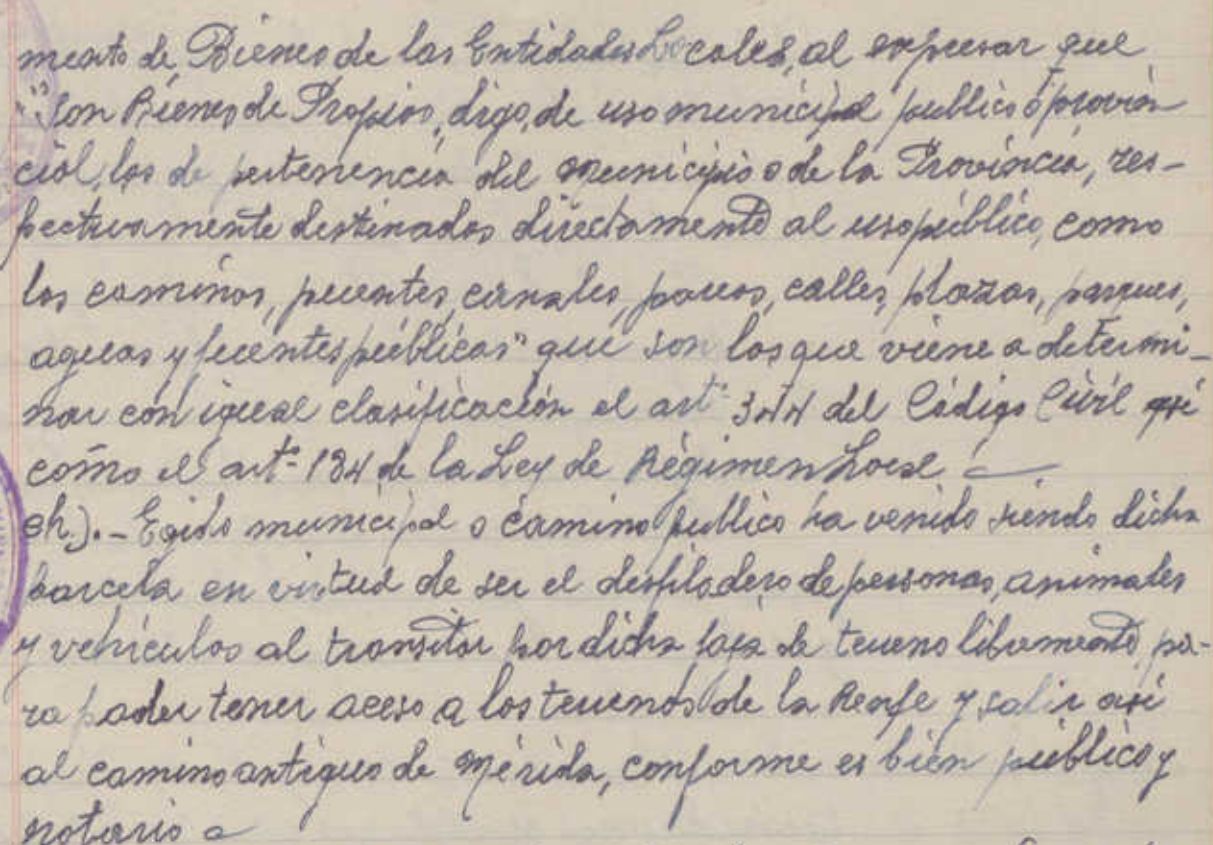 mento de Bienes de las Entidades Locales, al expresar que
"Son Bienes de Propios, digo, de uso municipal publico o provin
cial, los de pertenencia del municipio o de la Provincia, res-
pectivamente destinados directamente al uso público, como
los caminos, puentes, canales, paseos, calles, plazas, parques,
aguas y fuentes públicas" que son los que viene a determi-
nar con igual clasificación el artº 344 del Código Civil así
como el artº 184 de la Ley de Régimen Local
ch).- Egido municipal o camino publico ha venido siendo dicha
parcela en virtud de ser el desfiladero de personas, animales
y vehículos al transitar por dicha faja de terreno libremente, pa-
ra poder tener acceso a los terrenos de la Renfe y salir así
al camino antiguo de Mérida, conforme es bien público y
notorio